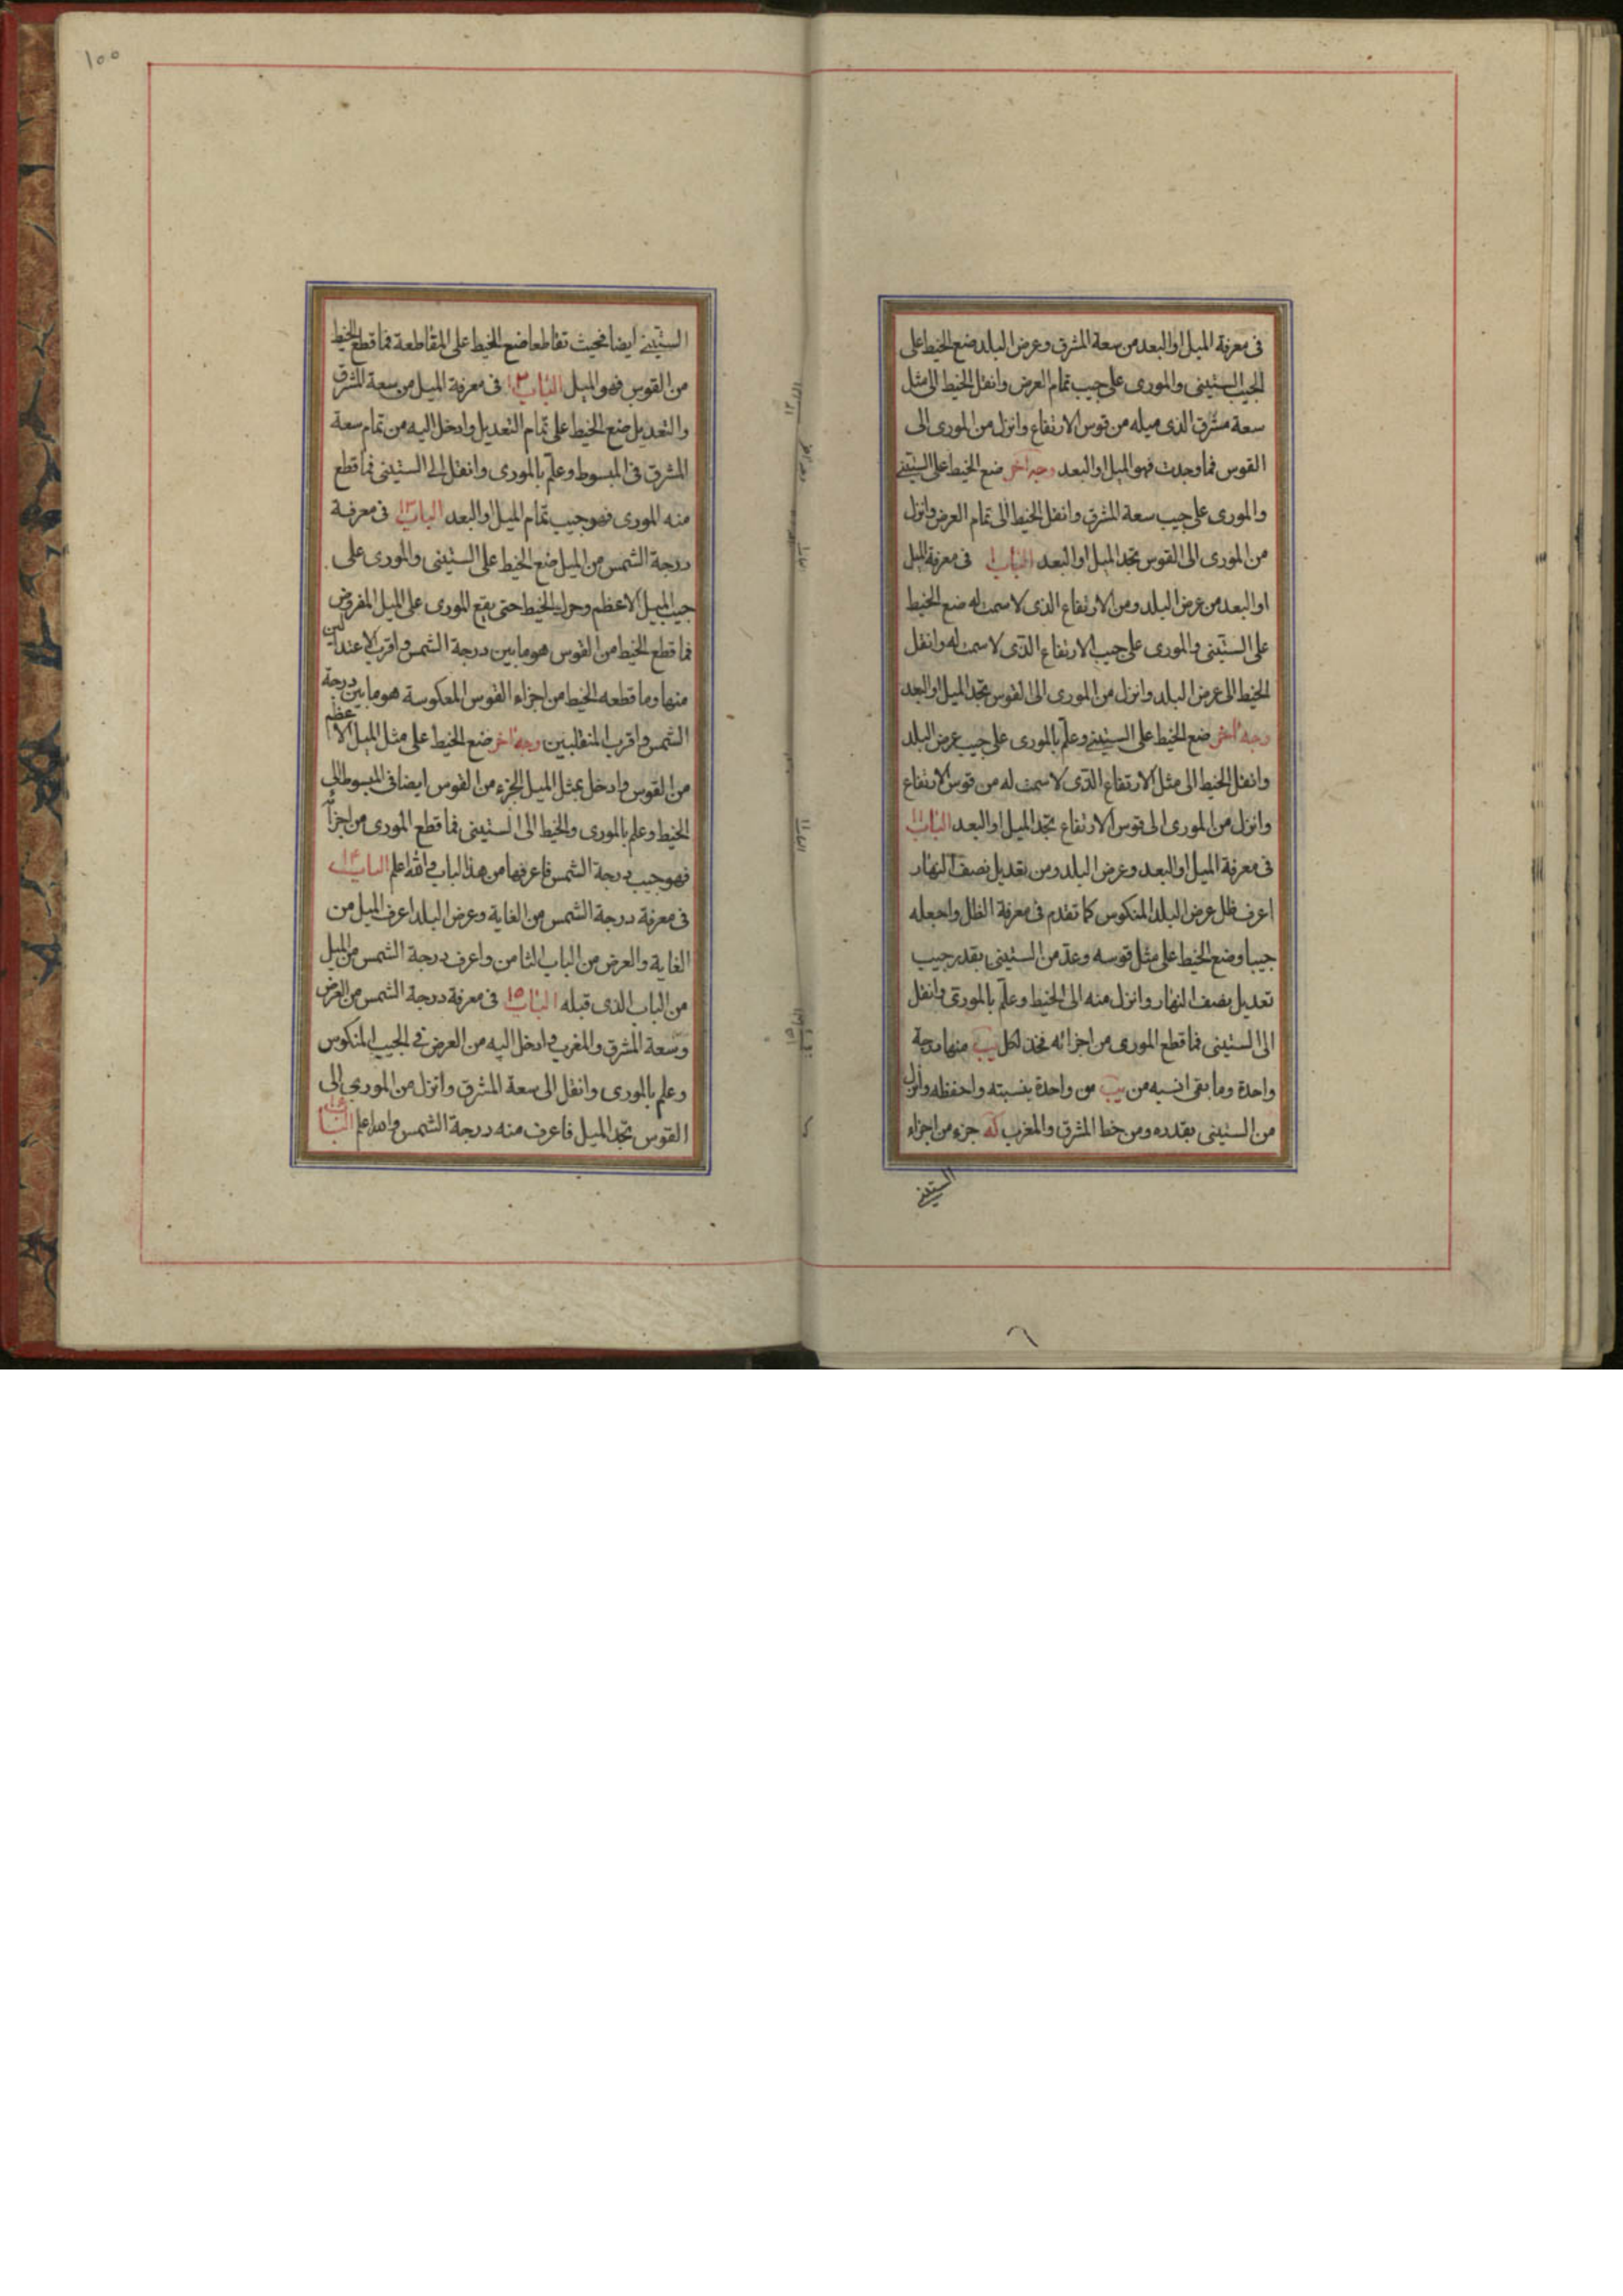 فى معرفة الميل او البعد من سعة المشرق وعرض البلد ضع الخيط على
الجيب الستينى والمورى على جيب تمام العرض وانقل الخيط الى مثل
سعة مشرق الذى ميله من قوس الارتفاع وانزل من المورى الى
القوس فما وجدت فهو الميل او البعد وجه اخر ضع الخيط على الستينى
والمورى على جيب سعة المشرق وانقل الخيط الى تمام العرض وانزل
من المورى الى القوس تجد الميل او البعد الباب فى معرفة الميل
او البعد من عرض البلد ومن الارتفاع الذى لا سمت له ضع الخيط
على الستينى والمورى على جيب الارتفاع الذى لا سمت له وانقل
الخيط الى عرض البلد وانزل من المورى الى القوس تجد الميل او البعد
وجه اخر ضع الخيط على الستينى وعلم بالمورى على جيب عرض البلد
وانقل الخيط الى مثل الارتفاع الذى لا سمت له من قوس الارتفاع
وانزل من المورى الى قوس الارتفاع تجد الميل او البعد الباب ١١
فى معرفة الميل او البعد وعرض البلد ومن تعديل نصف النهار
اعرف ظل عرض البلد المنكوس كما تقدم فى معرفة الظل واجعله
جيبا وضع الخيط على مثل قوسه وعد من الستينى بقدر جيب
تعديل نصف النهار وانزل منه الى الخيط وعلم بالمورى وانقل
الى الستينى فما قطع المورى من اجزائه فخذ لكل يب منها درجة
واحدة وما بقى انسبه من يب من واحدة بنسبته واحفظه وانزل
من الستينى بقدره ومن خط المشرق والمغرب كه جزء من اجزاء
الستينى
١٠٠
الستينى ايضا فحيث تقاطعا ضع الخيط على المقاطعة فما قطع الخيط
من القوس فهو الميل الباب ١٢ فى معرفة الميل من سعة المشرق
والتعديل ضع الخيط على تمام التعديل وادخل اليه من تمام سعة
المشرق فى المبسوط وعلم بالمورى وانقل الى الستينى فما قطع
منه المورى فهو جيب تمام الميل او البعد الباب ١٣ فى معرفة
درجة الشمس من الميل ضع الخيط على الستينى والمورى على
جيب الميل الاعظم وحرك الخيط حتى يقع المورى على الميل المفروض
فما قطع الخيط من القوس هو ما بين درجة الشمس واقرب الاعتدالين
منها وما قطعه الخيط من اجزاء القوس المعكوسة هو ما بين درجة
الشمس واقرب المنقلبين وجه اخر ضع الخيط على مثل الميل الاعظم
من القوس وادخل بمثل الميل الجزء من القوس ايضا فى المبسوط الى
الخيط وعلم بالمورى والخيط الى الستينى فما قطع المورى من اجزائه
فهو جيب درجة الشمس فاعرفها من هذا الباب والله اعلم الباب ١٤
فى معرفة درجة الشمس من الغاية وعرض البلد اعرف الميل من
الغاية والعرض من الباب الثامن واعرف درجة الشمس من الميل
من الباب الذى قبله الباب ١٥ فى معرفة درجة الشمس من العرض
وسعة المشرق والمغرب وادخل اليه من العرض فى الجيب المنكوس
وعلم بالمورى وانقل الى سعة المشرق وانزل من المورى الى
القوس تجد الميل فاعرف منه درجة الشمس والله اعلم الباب ١٦